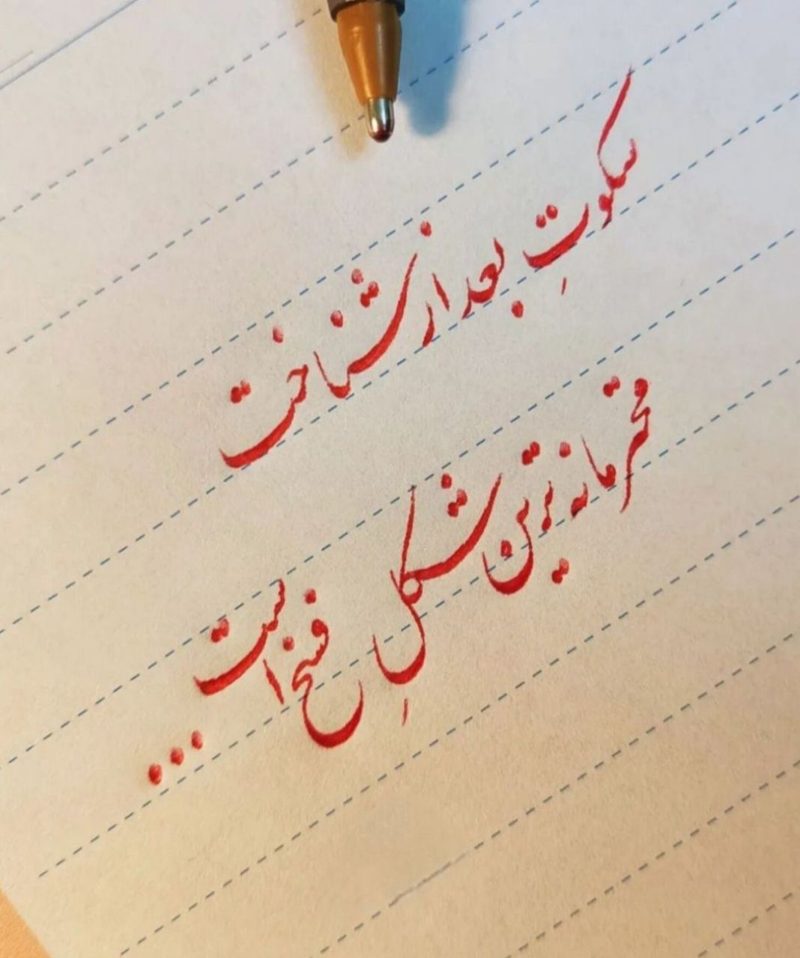 سکوتِ بعد از شناخت
محترمانه ترین شکلِ فسخ است...